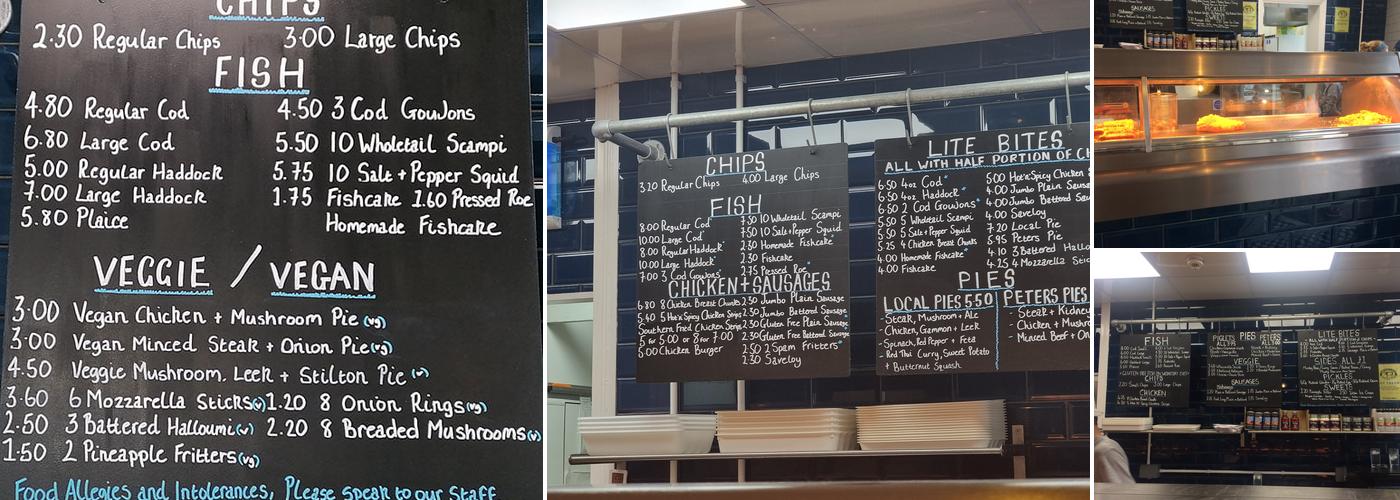 CHIPS
2.30 Regular Chips 3.00 Large Chips
FISH
4.80 Regular Cod 4.50 3 Cod Goujons
6.80 Large Cod 5.50 10 Wholetail Scampi
5.00 Regular Haddock 5.75 10 Salt + Pepper Squid
7.00 Large Haddock 1.75 Fishcake 1.60 Pressed Roe
5.80 Plaice Homemade Fishcake
VEGGIE / VEGAN
3.00 Vegan Chicken + Mushroom Pie (vg)
3.00 Vegan Minced Steak + Onion Pie (vg)
4.50 Veggie Mushroom, Leek + Stilton Pie (v)
3.60 6 Mozzarella Sticks (v) 1.20 8 Onion Rings (vg)
2.50 3 Battered Halloumi (v) 2.20 8 Breaded Mushrooms (v)
1.50 2 Pineapple Fritters (vg)
Food Allegies and Intolerances, Please speak to our Staff
CHIPS
3.20 Regular Chips 4.00 Large Chips
FISH
8.00 Regular Cod 7.50 10 Wholetail Scampi
10.00 Large Cod 7.50 10 Salt + Pepper Squid
8.00 Regular Haddock 2.30 Homemade Fishcake
10.00 Large Haddock 2.30 Fishcake
7.00 3 Cod Goujons 2.75 Pressed Roe
CHICKEN + SAUSAGES
6.80 8 Chicken Breast Chunks 2.50 Jumbo Plain Sausage
5.40 5 Hot'n'Spicy Chicken Strips 2.50 Jumbo Battered Sausage
Southern Fried Chicken Strips 2.30 Gluten Free Plain Sausage
5 for 5.00 or 8 for 7.00 2.30 Gluten Free Battered Sausage
5.00 Chicken Burger 2.50 2 Spam Fritters
2.30 Saveloy
LITE BITES
ALL WITH HALF PORTION OF CH
6.50 4oz Cod 5.00 Hot'n'Spicy Chicken
6.50 4oz Haddock 4.00 Jumbo Plain Sausa
6.50 2 Cod Goujons 4.00 Jumbo Battered
5.50 5 Wholetail Scampi 4.00 Saveloy
5.50 5 Salt + Pepper Squid 7.20 Local Pie
5.25 4 Chicken Breast Chunks 5.95 Peters Pie
4.00 Homemade Fishcake 4.10 3 Battered Hallo
4.00 Fishcake 4.25 4 Mozzarella Stic
PIES
LOCAL PIES 5.50 PETERS PIES
- Steak, Mushroom + Ale - Steak + Kidney
- Chicken, Gammon + Leek - Chicken + Mushro
- Spinach, Red Pepper + Feta - Minced Beef + On
- Red Thai Curry, Sweet Potato
+ Butternut Squash
SAUSAGES
PICKLES
SWEET
FISH
CHIPS
CHICKEN
PIGLETS PIES PETERS
VEGGIE
SAUSAGES
LITE BITES
SIDES ALL £1
PICKLES
SWEET